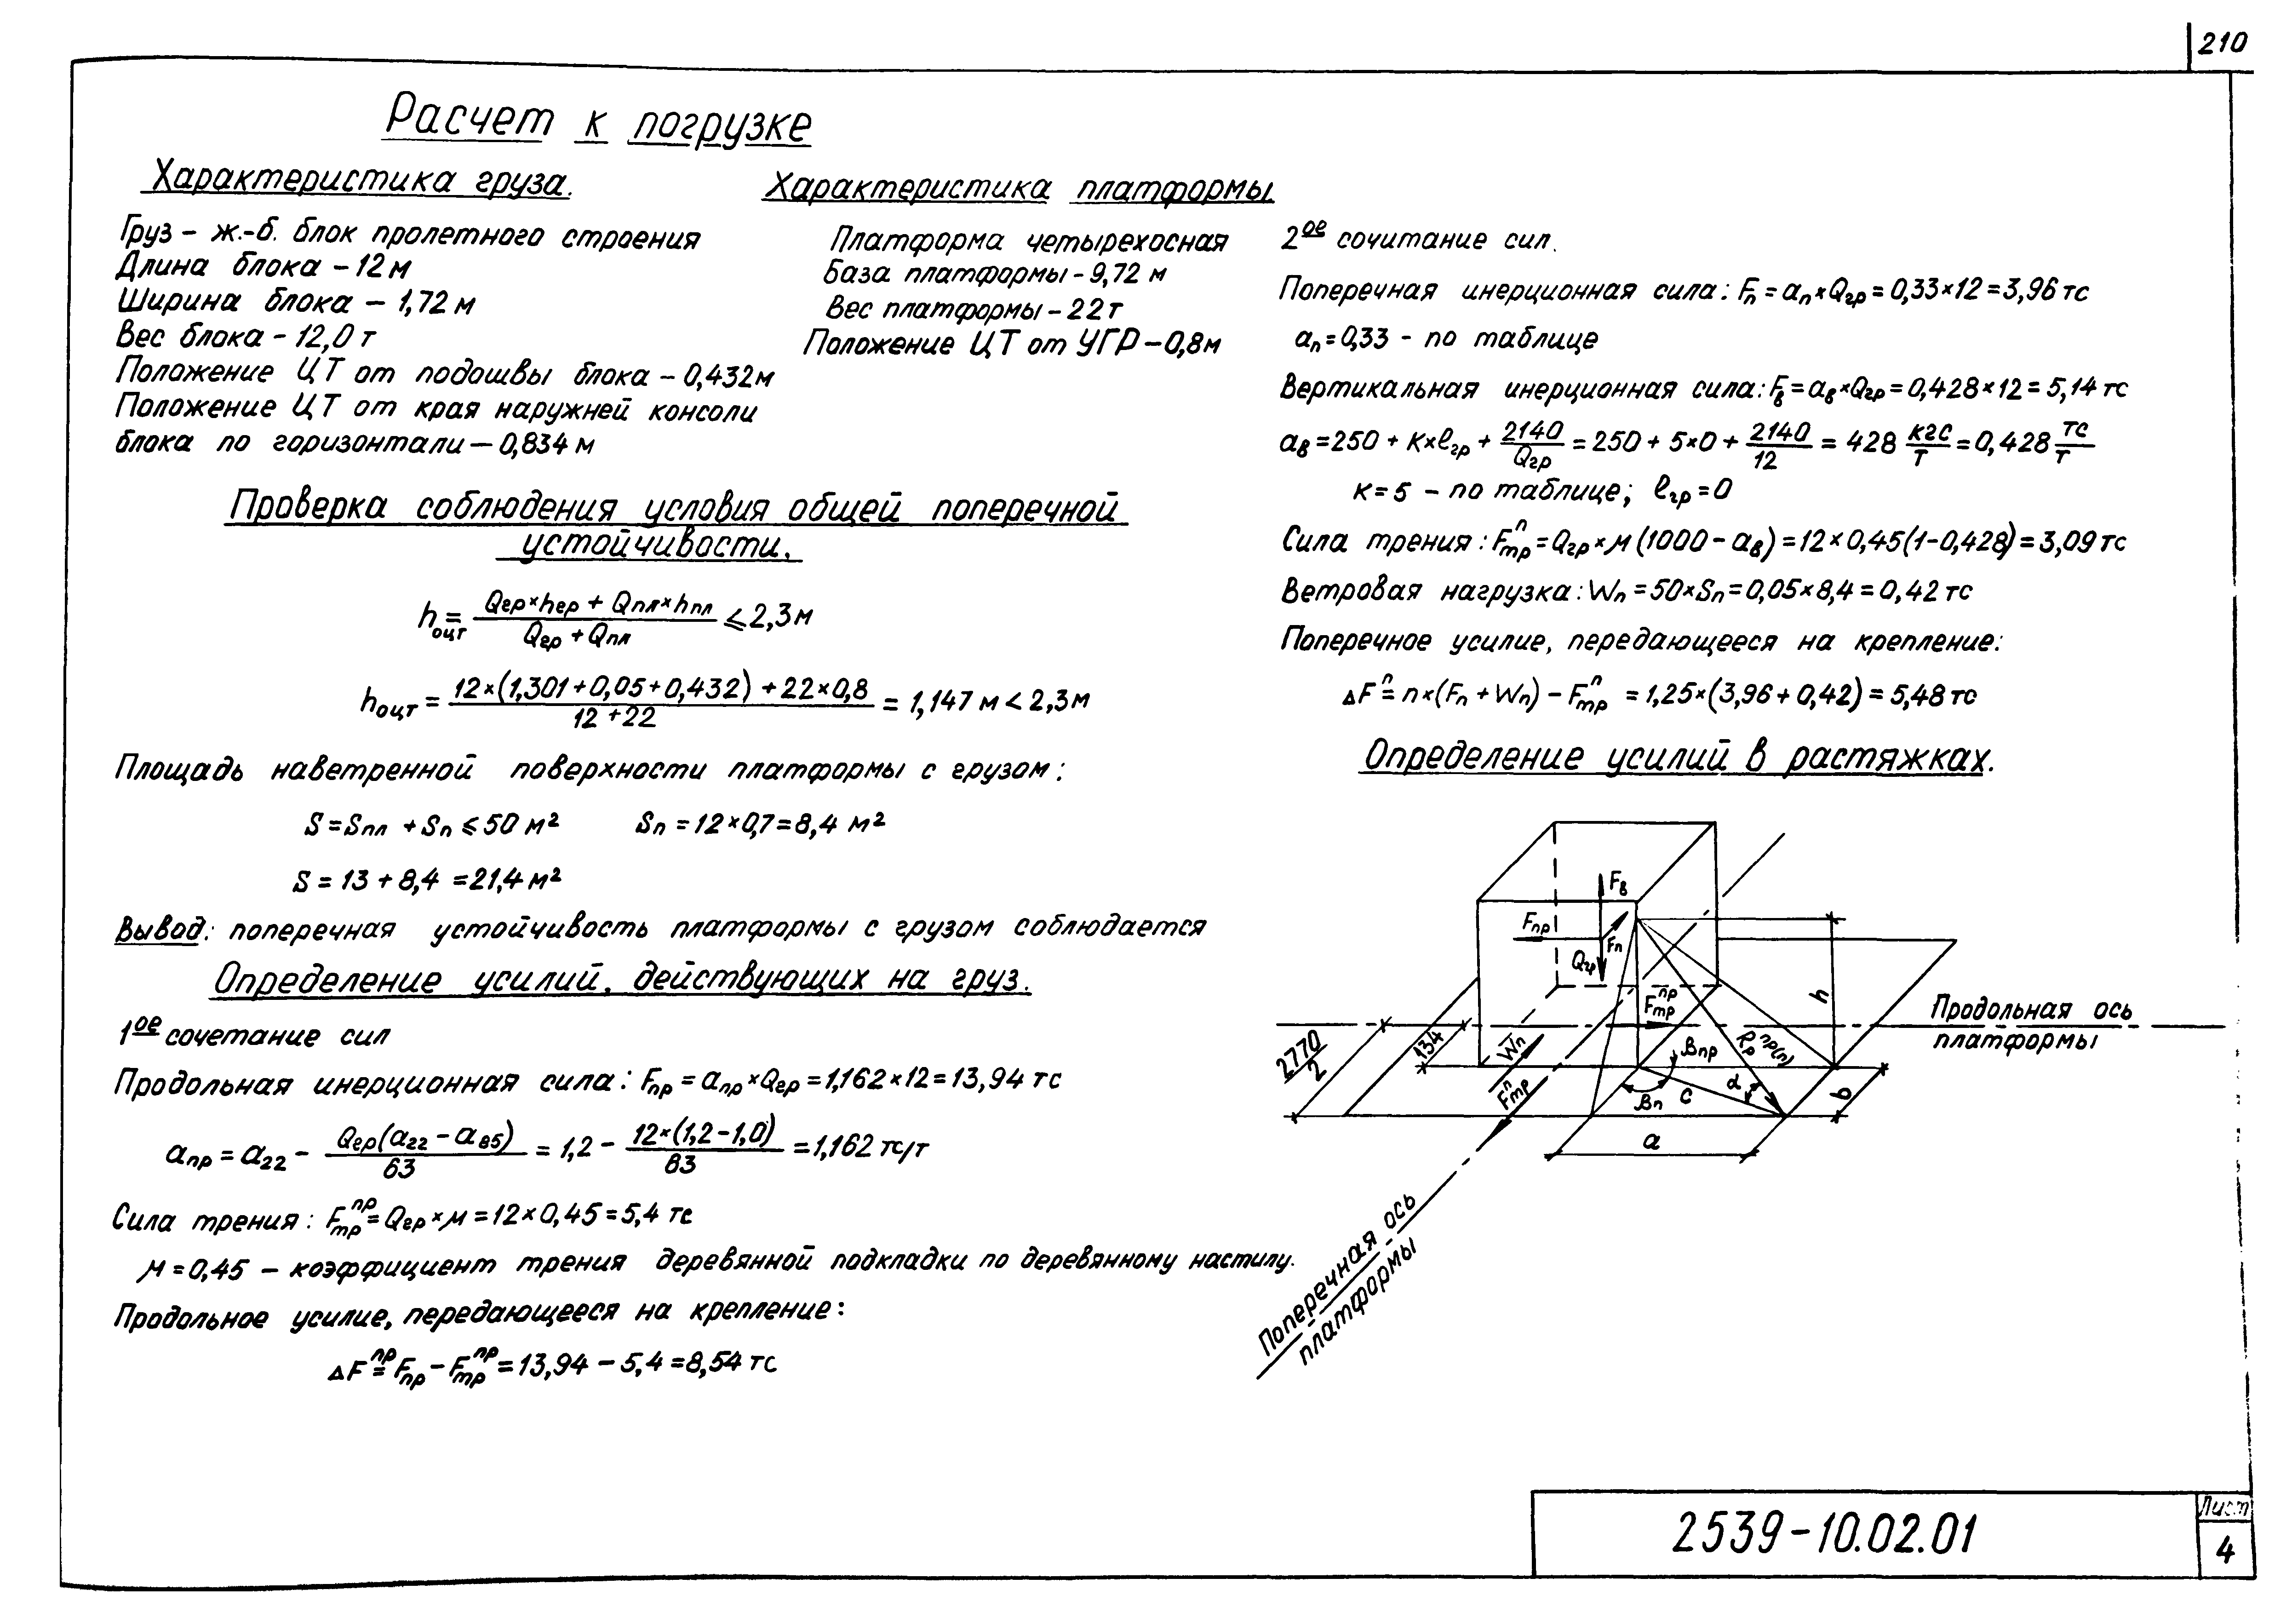 210
Расчет к погрузке
Характеристика груза.
Груз – ж.-б. блок пролетного строения
Длина блока – 12 м
Ширина блока – 1,72 м
Вес блока – 12,0 т
Положение ЦТ от подошвы блока – 0,432м
Положение ЦТ от края наружней консоли
блока по горизонтали – 0,834 м
Характеристика платформы.
Платформа четырехосная
База платформы – 9,72 м
Вес платформы – 22т
Положение ЦТ от УГР – 0,8м
Проверка соблюдения условия общей поперечной
устойчивости.
hоцт = (Qгр×hгр + Qпл×hпл) / (Qгр + Qпл) ⩽ 2,3м
hоцт = (12×(1,301+0,05+0,432)+22×0,8) / (12+22) = 1,147 м < 2,3м
Площадь наветренной поверхности платформы с грузом:
S = Sпл + Sп ⩽ 50 м² Sп = 12×0,7 = 8,4 м²
S = 13 + 8,4 = 21,4 м²
Вывод: поперечная устойчивость платформы с грузом соблюдается
Определение усилий, действующих на груз.
1ое сочетание сил
Продольная инерционная сила: Fпр = aпр×Qгр = 1,162×12 = 13,94 тс
aпр = a22 – Qгр(a22 – a85) / 63 = 1,2 – 12×(1,2–1,0) / 63 = 1,162 тс/т
Сила трения: Fтрпр = Qгр×м = 12×0,45 = 5,4 тс
м = 0,45 – коэффициент трения деревянной подкладки по деревянному настилу.
Продольное усилие, передающееся на крепление:
ΔFпр = Fпр – Fтрпр = 13,94 – 5,4 = 8,54 тс
2ое сочитание сил.
Поперечная инерционная сила: Fп = aп×Qгр = 0,33×12 = 3,96 тс
aп = 0,33 – по таблице
Вертикальная инерционная сила: Fв = aв×Qгр = 0,428×12 = 5,14 тс
aв = 250 + K×ℓгр + 2140/Qгр = 250 + 5×0 + 2140/12 = 428 кгс/т = 0,428 тс/т
K = 5 – по таблице; ℓгр = 0
Сила трения: Fтрп = Qгр×м(1000 – aв) = 12×0,45(1–0,428) = 3,09 тс
Ветровая нагрузка: Wп = 50×Sп = 0,05×8,4 = 0,42 тс
Поперечное усилие, передающееся на крепление:
ΔFп = n×(Fп + Wп) – Fтрп = 1,25×(3,96+0,42) = 5,48 тс
Определение усилий в растяжках.
Fв
Fпр
Fп
Qгр
Fтрпр
h
Продольная ось
платформы
2770/2
134
Wп
Fтрп
βпр
Rрпр(п)
α
βп
c
b
a
Поперечная ось
платформы
2539-10.02.01
Лист
4